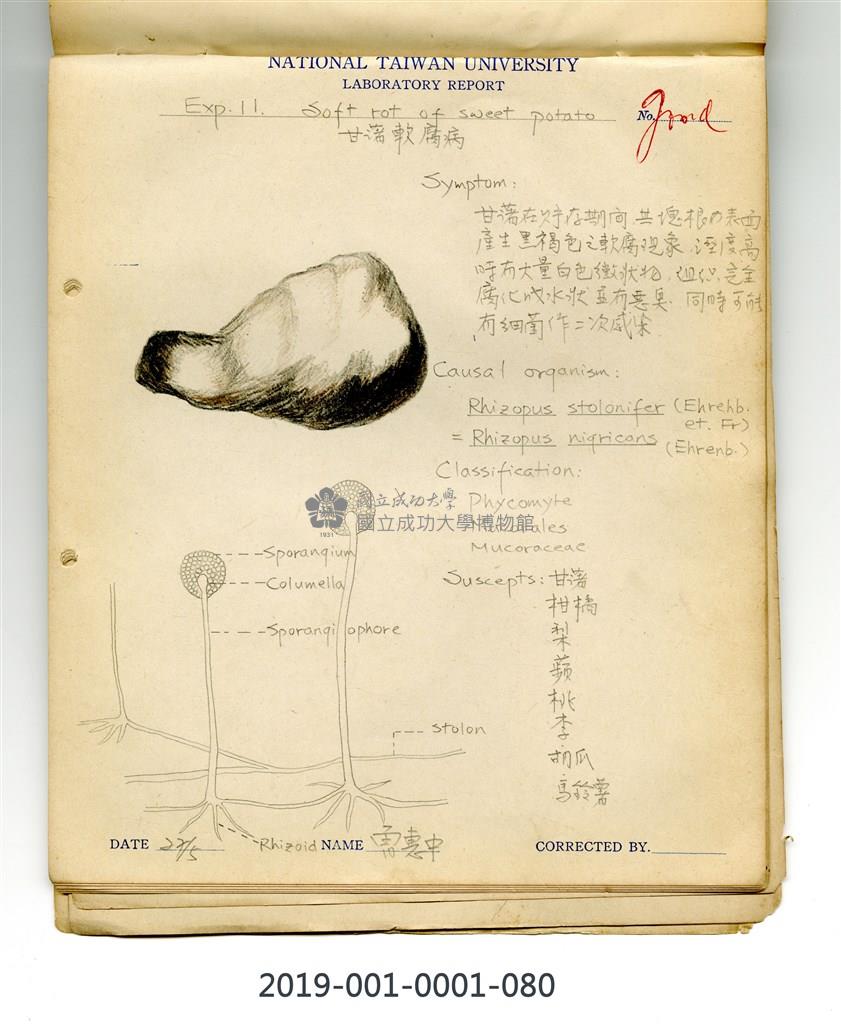 NATIONAL TAIWAN UNIVERSITY
LABORATORY REPORT
Exp. 11. Soft rot of sweet potato
No. Good
甘藷軟腐病
Symptom:
甘藷在貯存期间,其塊根の表面
產生黑褐色之軟腐現象,溼度高
時有大量白色黴狀物,组织完全
腐化成水狀並有惡臭,同時可能
有细菌作二次感染
Causal organism:
Rhizopus stolonifer (Ehrehb.
et. Fr)
= Rhizopus nigricans (Ehrenb.)
Classification:
Phycomyte
Mucoraceae
Suscepts: 甘藷
柑橘
梨
蘋
桃
李
胡瓜
馬鈴薯
國立成功大學
國立成功大學博物館
1931
Sporangium
Columella
Sporangiophore
Stolon
Rhizoid
DATE 27/5 NAME 雷惠中 CORRECTED BY.
2019-001-0001-080